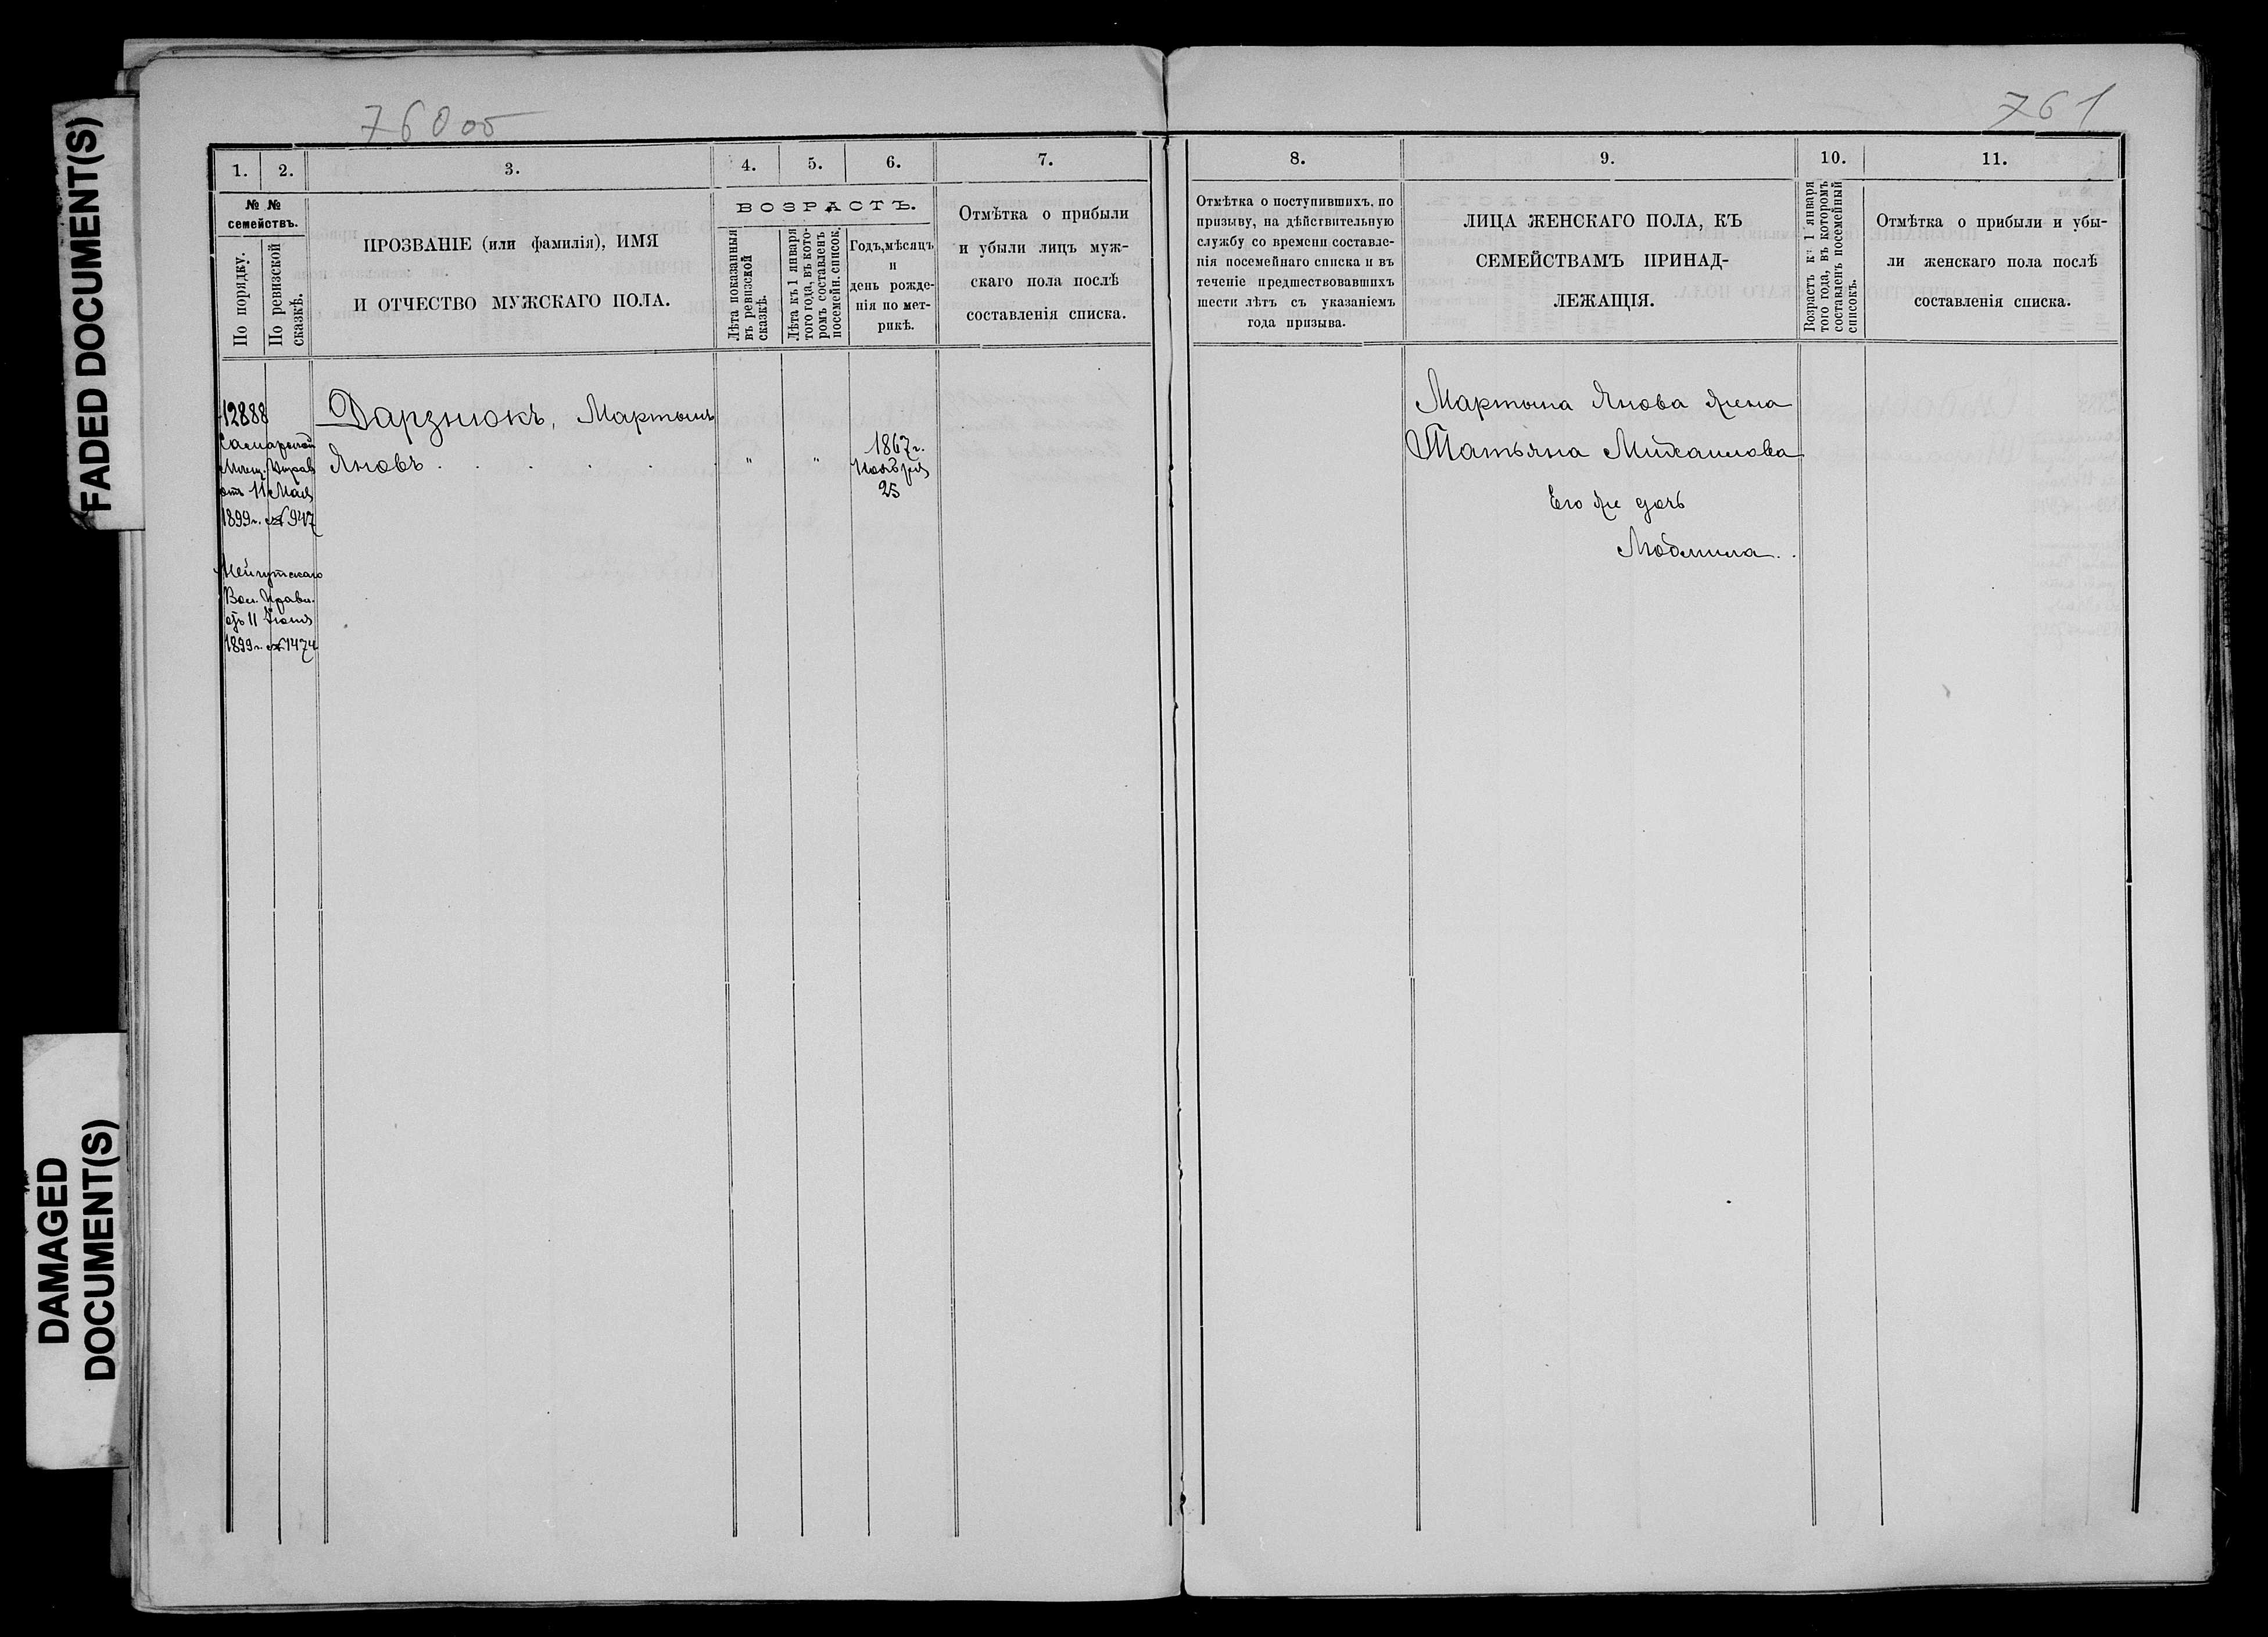 FADED DOCUMENT(S)
DAMAGED
DOCUMENT(S)
760 об
1. 2. 3. 4. 5. 6. 7.
№ №
семействъ.
По порядку.
По ревизской
сказкѣ.
ПРОЗВАНІЕ (или фамилія), ИМЯ
И ОТЧЕСТВО МУЖСКАГО ПОЛА.
ВОЗРАСТЪ.
Лѣта показанныя
въ ревизской
сказкѣ.
Лѣта къ 1 января
того года, въ кото-
ромъ составленъ
посемейн. список.
Годъ, мѣсяцъ
и
день рожде-
нія по мет-
рикѣ.
Отмѣтка о прибыли
и убыли лицъ муж-
скаго пола послѣ
составленія списка.
12888
Самарской
Мѣщ. Управ
отъ 11 Мая
1899 г. № 947
Вол. Правл.
отъ 11 Іюня
1899 г. № 1474
Дарзнюкъ, Мартынъ
Яновъ . . . . . " "
1867 г.
Ноября
25
761
8. 9. 10. 11.
Отмѣтка о поступившихъ, по
призыву, на дѣйствительную
службу со времени составле-
нія посемейнаго списка и въ
теченіе предшествовавшихъ
шести лѣтъ съ указаніемъ
года призыва.
ЛИЦА ЖЕНСКАГО ПОЛА, КЪ
СЕМЕЙСТВАМЪ ПРИНАД-
ЛЕЖАЩІЯ.
Возрастъ къ 1 января
того года, въ которомъ
составленъ посемейный
списокъ.
Отмѣтка о прибыли и убы-
ли женскаго пола послѣ
составленія списка.
Мартына Янова жена
Татьяна Михаилова
Его же дочь
Людмила . .